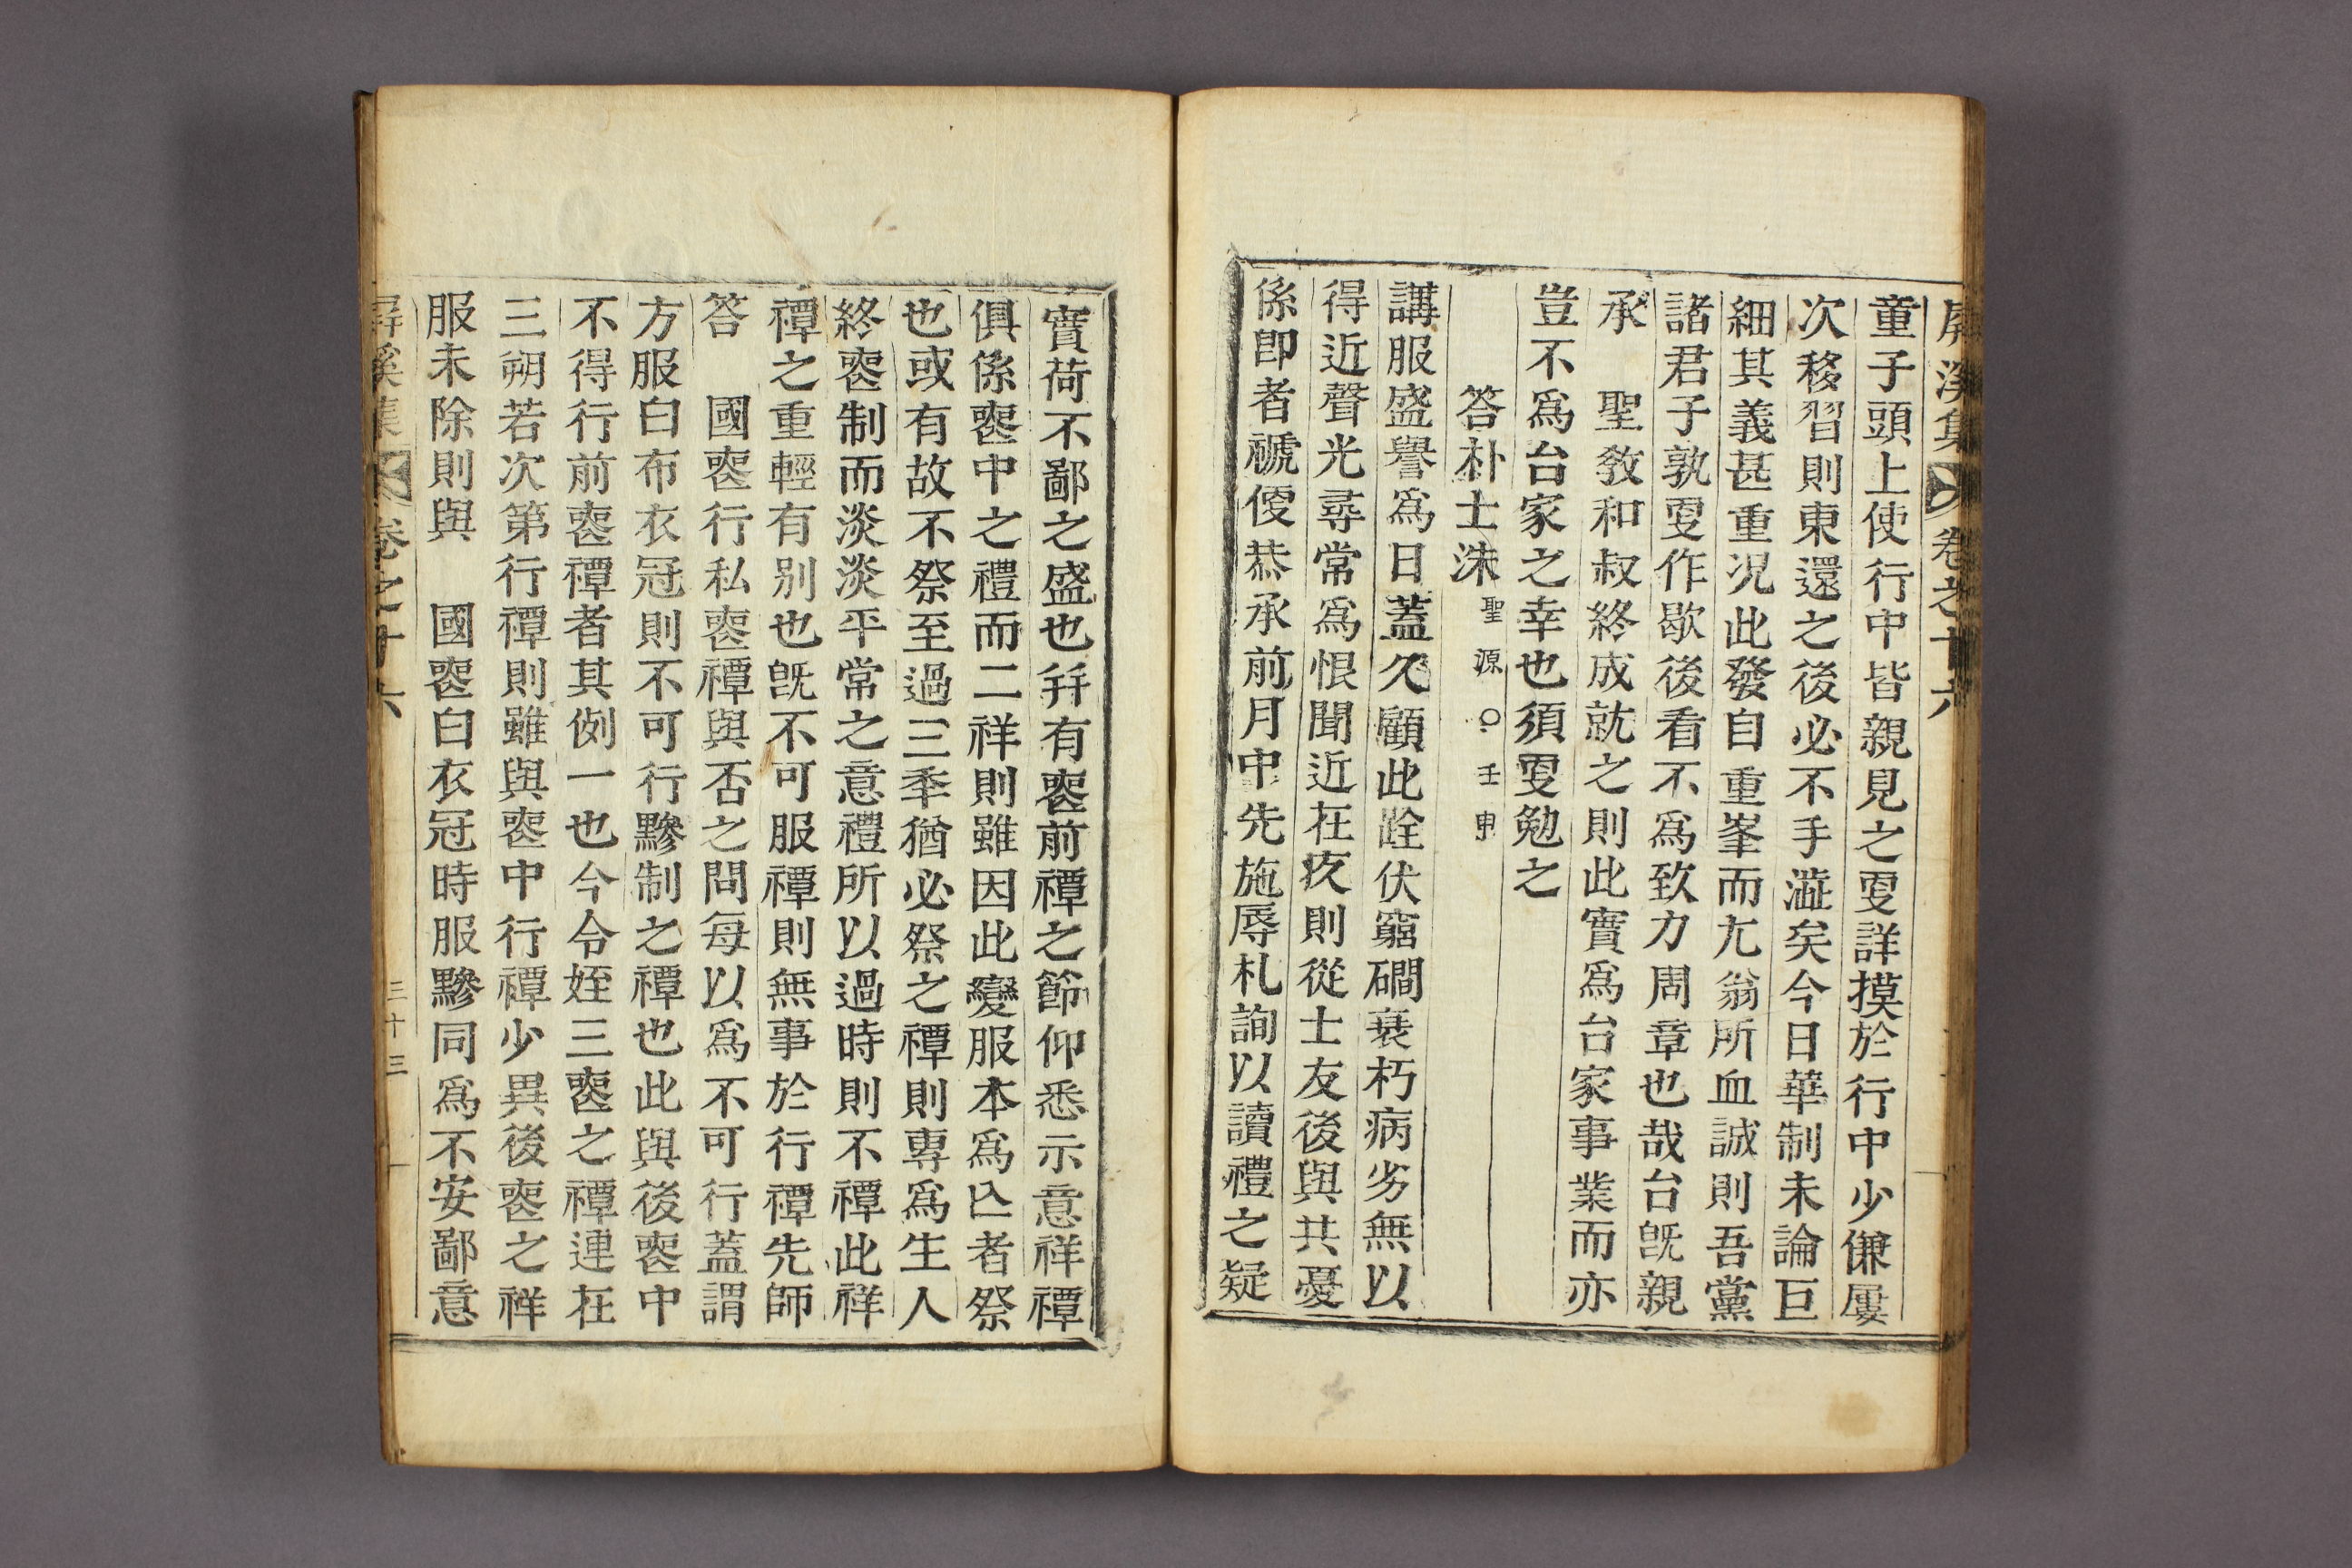 屛溪集 卷之十六
童子頭上使行中皆親見之更詳摸於行中少傔屢
次移習則東還之後必不手澁矣今日華制未論巨
細其義甚重况此發自重峯而尤翁所血誠則吾黨
諸君子孰更作歇後看不爲致力周章也哉台旣親
承 聖敎和叔終成就之則此實爲台家事業而亦
豈不爲台家之幸也須更勉之
答朴士洙聖源○壬申
講服盛譽爲日蓋久顧此跧伏窮磵衰朽病劣無以
得近聲光尋常爲恨聞近在疚則從士友後與共憂
係卽者褫便恭承前月中先施辱札詢以讀禮之疑
實荷不鄙之盛也幷有喪前禫之節仰悉示意祥禫
俱係喪中之禮而二祥則雖因此變服本爲亾者祭
也或有故不祭至過三年猶必祭之禫則專爲生人
終喪制而淡淡平常之意禮所以過時則不禫此祥
禫之重輕有別也旣不可服禫則無事於行禫先師
答 國喪行私喪禫與否之問每以爲不可行蓋謂
方服白布衣冠則不可行黲制之禫也此與後喪中
不得行前喪禫者其例一也今令姪三喪之禫連在
三朔若次第行禫則雖與喪中行禫少異後喪之祥
服未除則與 國喪白衣冠時服黲同爲不安鄙意
屛溪集 卷之十六 三十三